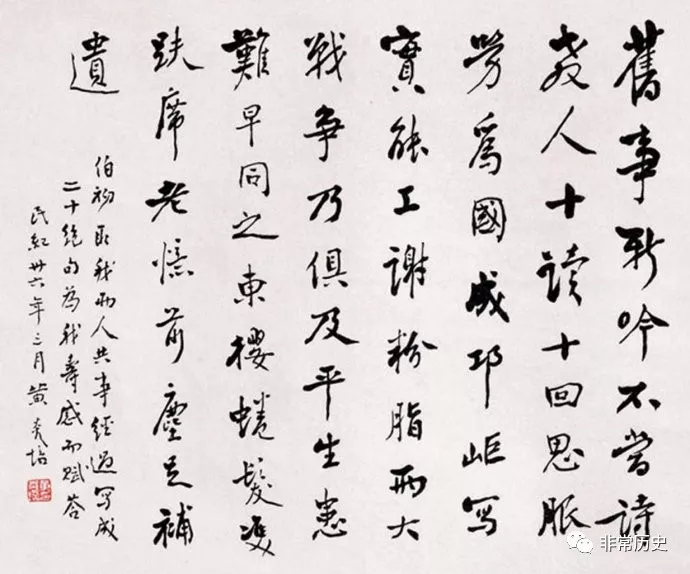 舊事新吟不當詩
教人十讀十回思服
勞爲國成邛岠寫
實能工謝粉脂兩大
戰爭乃俱及平生患
難早同之東櫻蜷髮雙
趺席老憶前塵足補
遺
伯初取我兩人共事經過寫成
二十絕句為我壽感而賦答
民紀卅六年三月黃炎培
非常历史